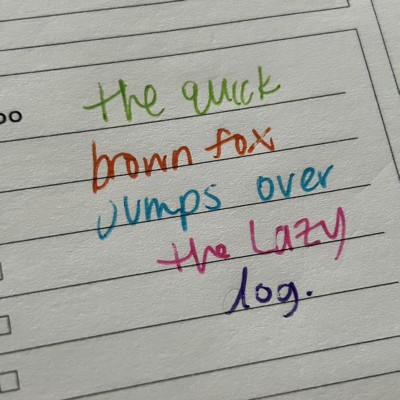 oo
the quick
brown fox
jumps over
the lazy
dog.